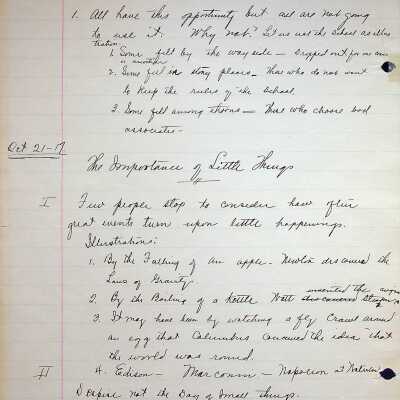 1. All have this opportunity but all are not going
to use it. Why not? Let us use the School as illus
tration.
1. Some fell by the wayside — dropped out for one cause
or another
2. Some fell in stony places — Those who do not want
to keep the rules of the School.
3. Some fell among thorns — Those who choose bad
associates —
Oct 21-17
The Importance of Little Things
I Few people stop to consider how often
great events turn upon little happenings.
Illustrations:
1. By the Falling of an apple - Newton discovered the
Laws of Gravity.
invented the
2. By the Boiling of a kettle Watt discovered Steam
3. It may have been by watching a fly crawl around
an egg that Columbus conceived the idea that
the world was round.
II 4. Edison — Marconi — Napoleon
Despise not the Day of Small things.